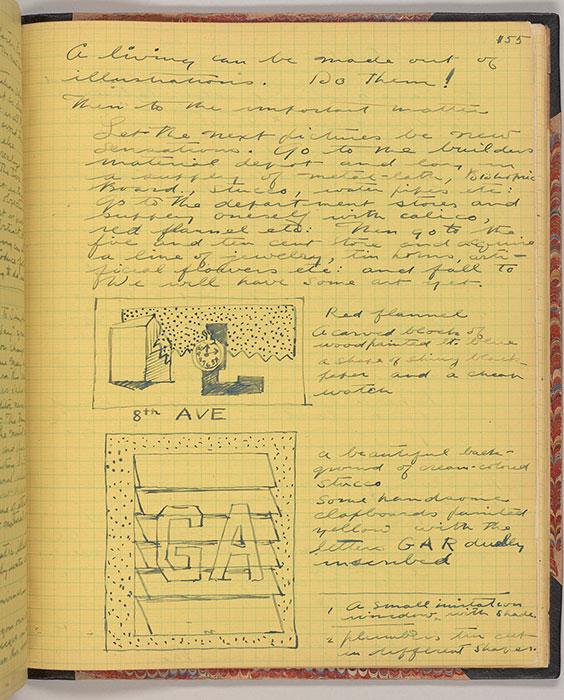 #55
A living can be made out of
illustrations. Do Them!
Then to the important matter
Let the next pictures be new
sensations. Go to the builders
material depot and lay in
a supply of metal-lath,
Board, Stucco, water pipes etc:
Go to the department stores and
supply oneself with calico,
red flannel etc: Then go to the
five and ten cent store and acquire
a line of jewelry, tin horns, arti-
ficial flowers etc: and fall to
We will have some art yet.
Red flannel
A carved block of
wood painted lt. blue
a shape of shiny black
paper and a cheap
watch
8th AVE
a beautiful back-
ground of cream-colored
Stucco
Some handsome
clapboards painted
yellow with the
letters GAR duly
inscribed
GA
1 A small imitation
window with shade
2 plumbers tin cut
in different shapes.